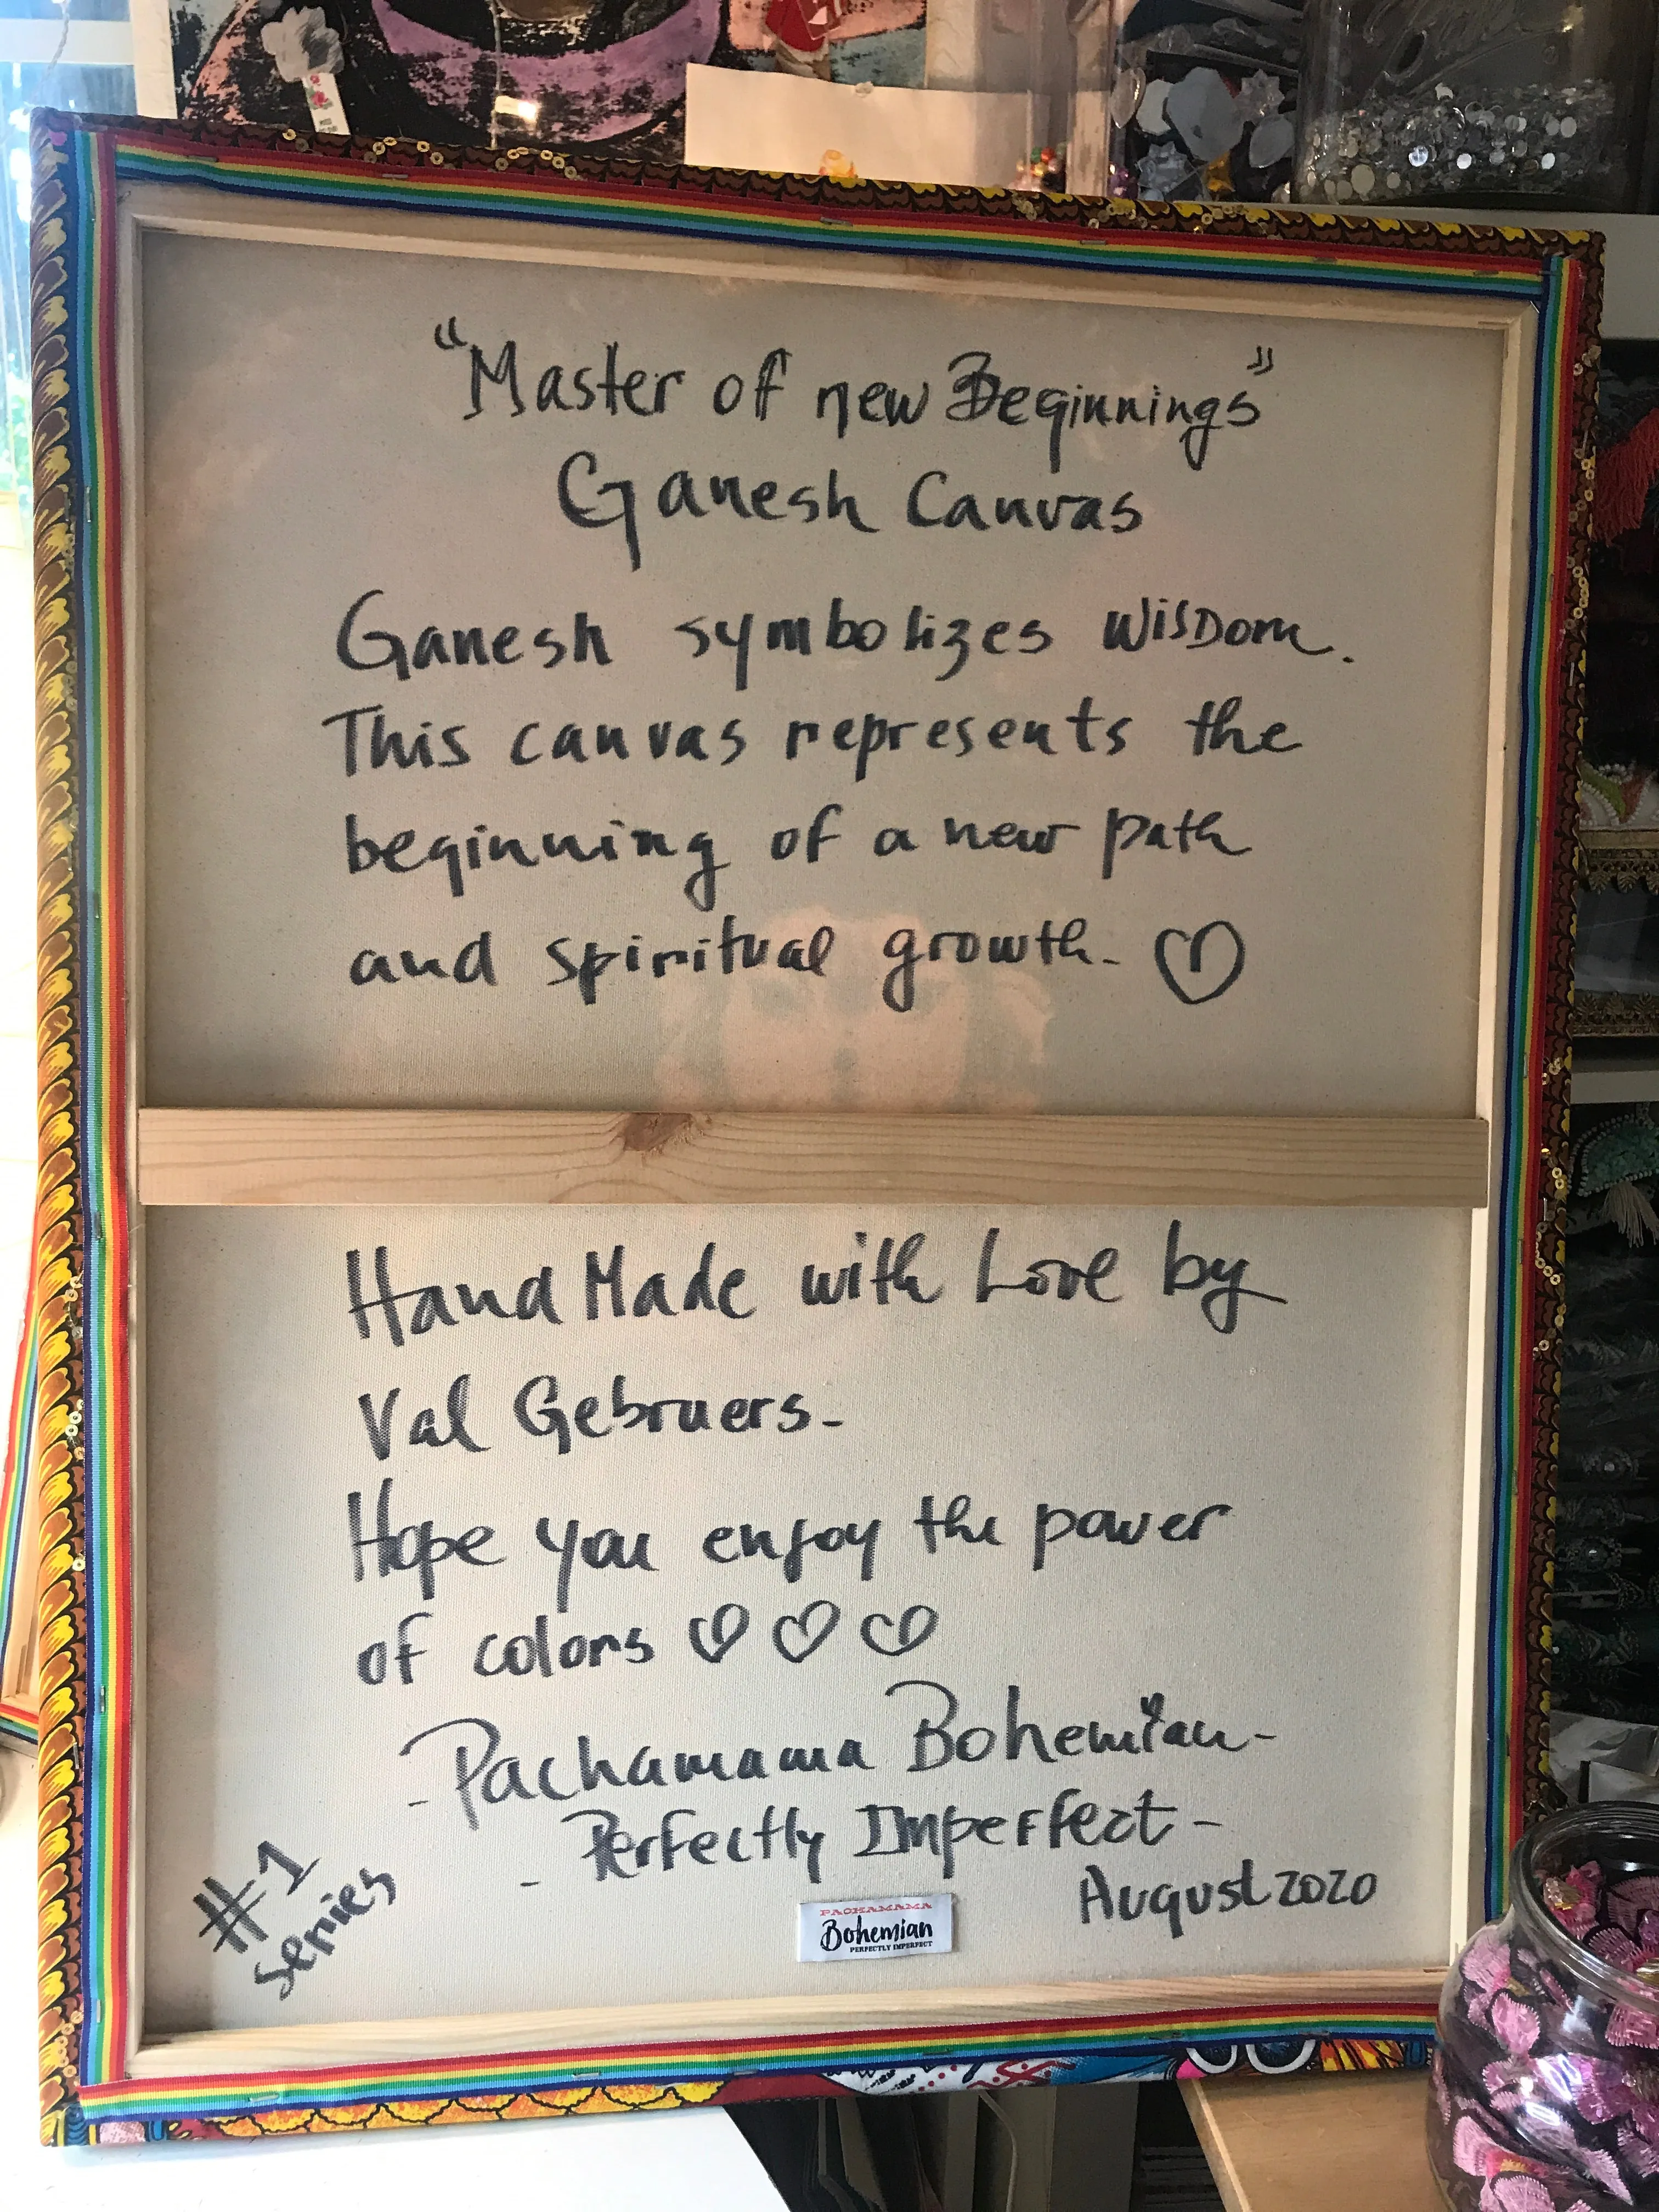 "Master of new Beginnings"
Ganesh Canvas
Ganesh symbolizes WisDom.
This canvas represents the
beginning of a new path
and spiritual growth- ♡
Hand Made with Love by
Val Gebruers-
Hope you enjoy the power
of colors ♡ ♡ ♡
-Pachamama Bohemian-
- Perfectly Imperfect-
August 2020
#1
series
PACHAMAMA
Bohemian
PERFECTLY IMPERFECT